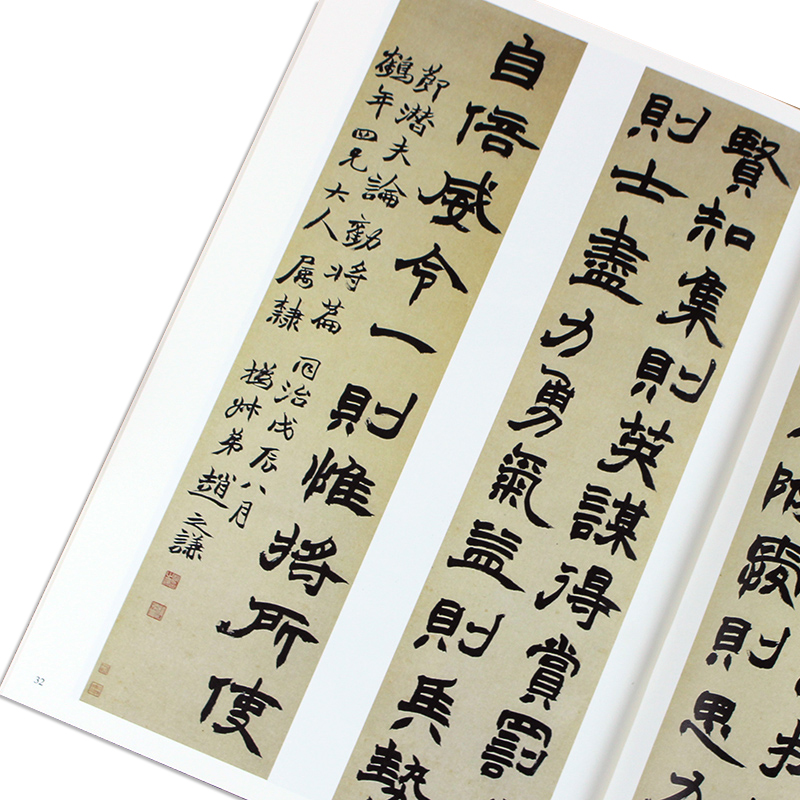 附愛則思力
賢知集則英謀得賞罰
則士盡力勇氣益則兵勢
自倍威令一則惟將所使
節潛夫論勸將篇
鶴年四兄大人属隸
同治戊辰八月
撝叔弟趙之謙
32